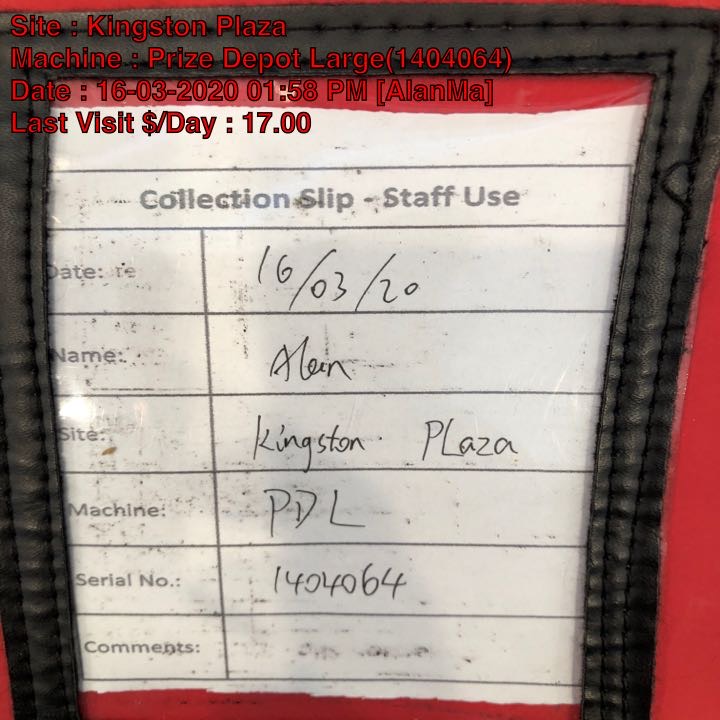 Site : Kingston Plaza
Machine : Prize Depot Large(1404064)
Date : 16-03-2020 01:58 PM [AlanMa]
Last Visit $/Day : 17.00
Collection Slip - Staff Use
Date: 16/03/20
Name: Alan
Site: Kingston PLaza
Machine: PDL
Serial No.: 1404064
Comments: